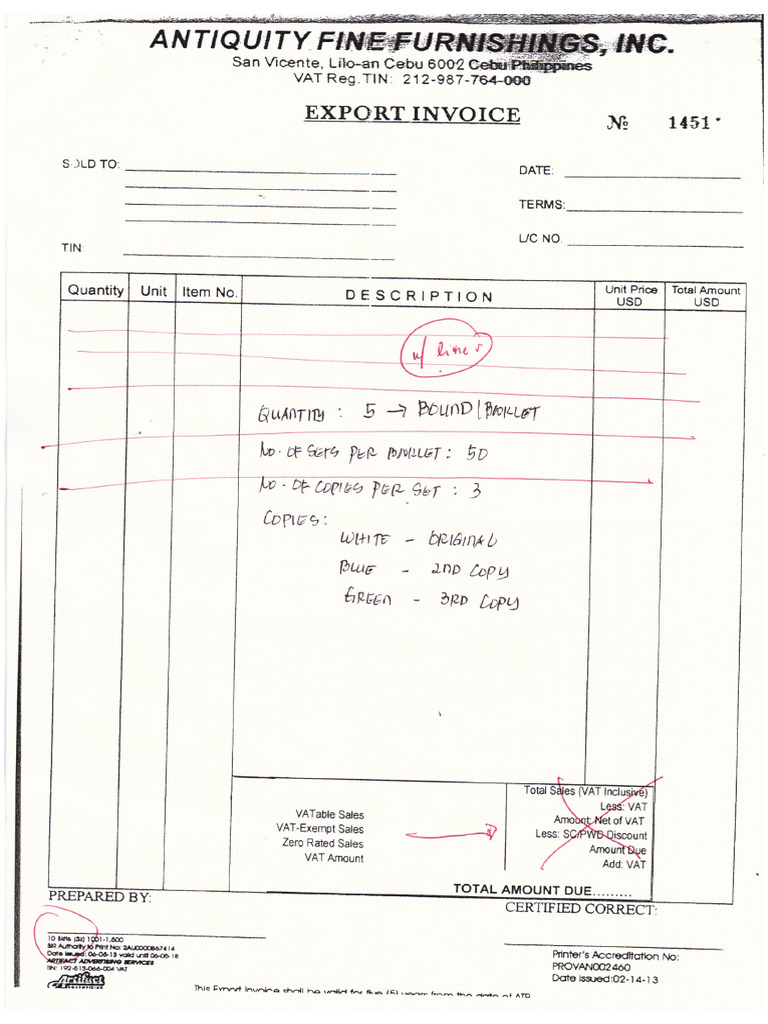 ANTIQUITY FINE FURNISHINGS, INC.
San Vicente, Lilo-an Cebu 6002 Cebu Philippines
VAT Reg.TIN: 212-987-764-000
EXPORT INVOICE
№ 1451
SOLD TO:
DATE:
TERMS:
L/C NO.
TIN:
Quantity Unit Item No. DESCRIPTION Unit Price USD Total Amount USD
w/ lines
QUANTITY : 5 → BOUND/BOOKLET
NO. OF SETS PER BOOKLET : 50
NO. OF COPIES PER SET : 3
COPIES:
WHITE - ORIGINAL
BLUE - 2ND COPY
GREEN - 3RD COPY
VATable Sales
VAT-Exempt Sales
Zero Rated Sales
VAT Amount
Total Sales (VAT Inclusive)
Less: VAT
Amount: Net of VAT
Less: SC/PWD Discount
Amount Due
Add: VAT
TOTAL AMOUNT DUE.........
PREPARED BY:
CERTIFIED CORRECT:
10 Bklts (3x) 1001-1,500
BIR Authority to Print No: 2AU0000867414
Date Issued: 06-06-13 valid until 06-06-18
ARTIFACT ADVERTISING SERVICES
TIN: 192-613-066-004 VAT
Artifact
Printer's Accreditation No:
PROVAN002460
Date issued:02-14-13
This Export Invoice shall be valid for five (5) years from the date of ATP